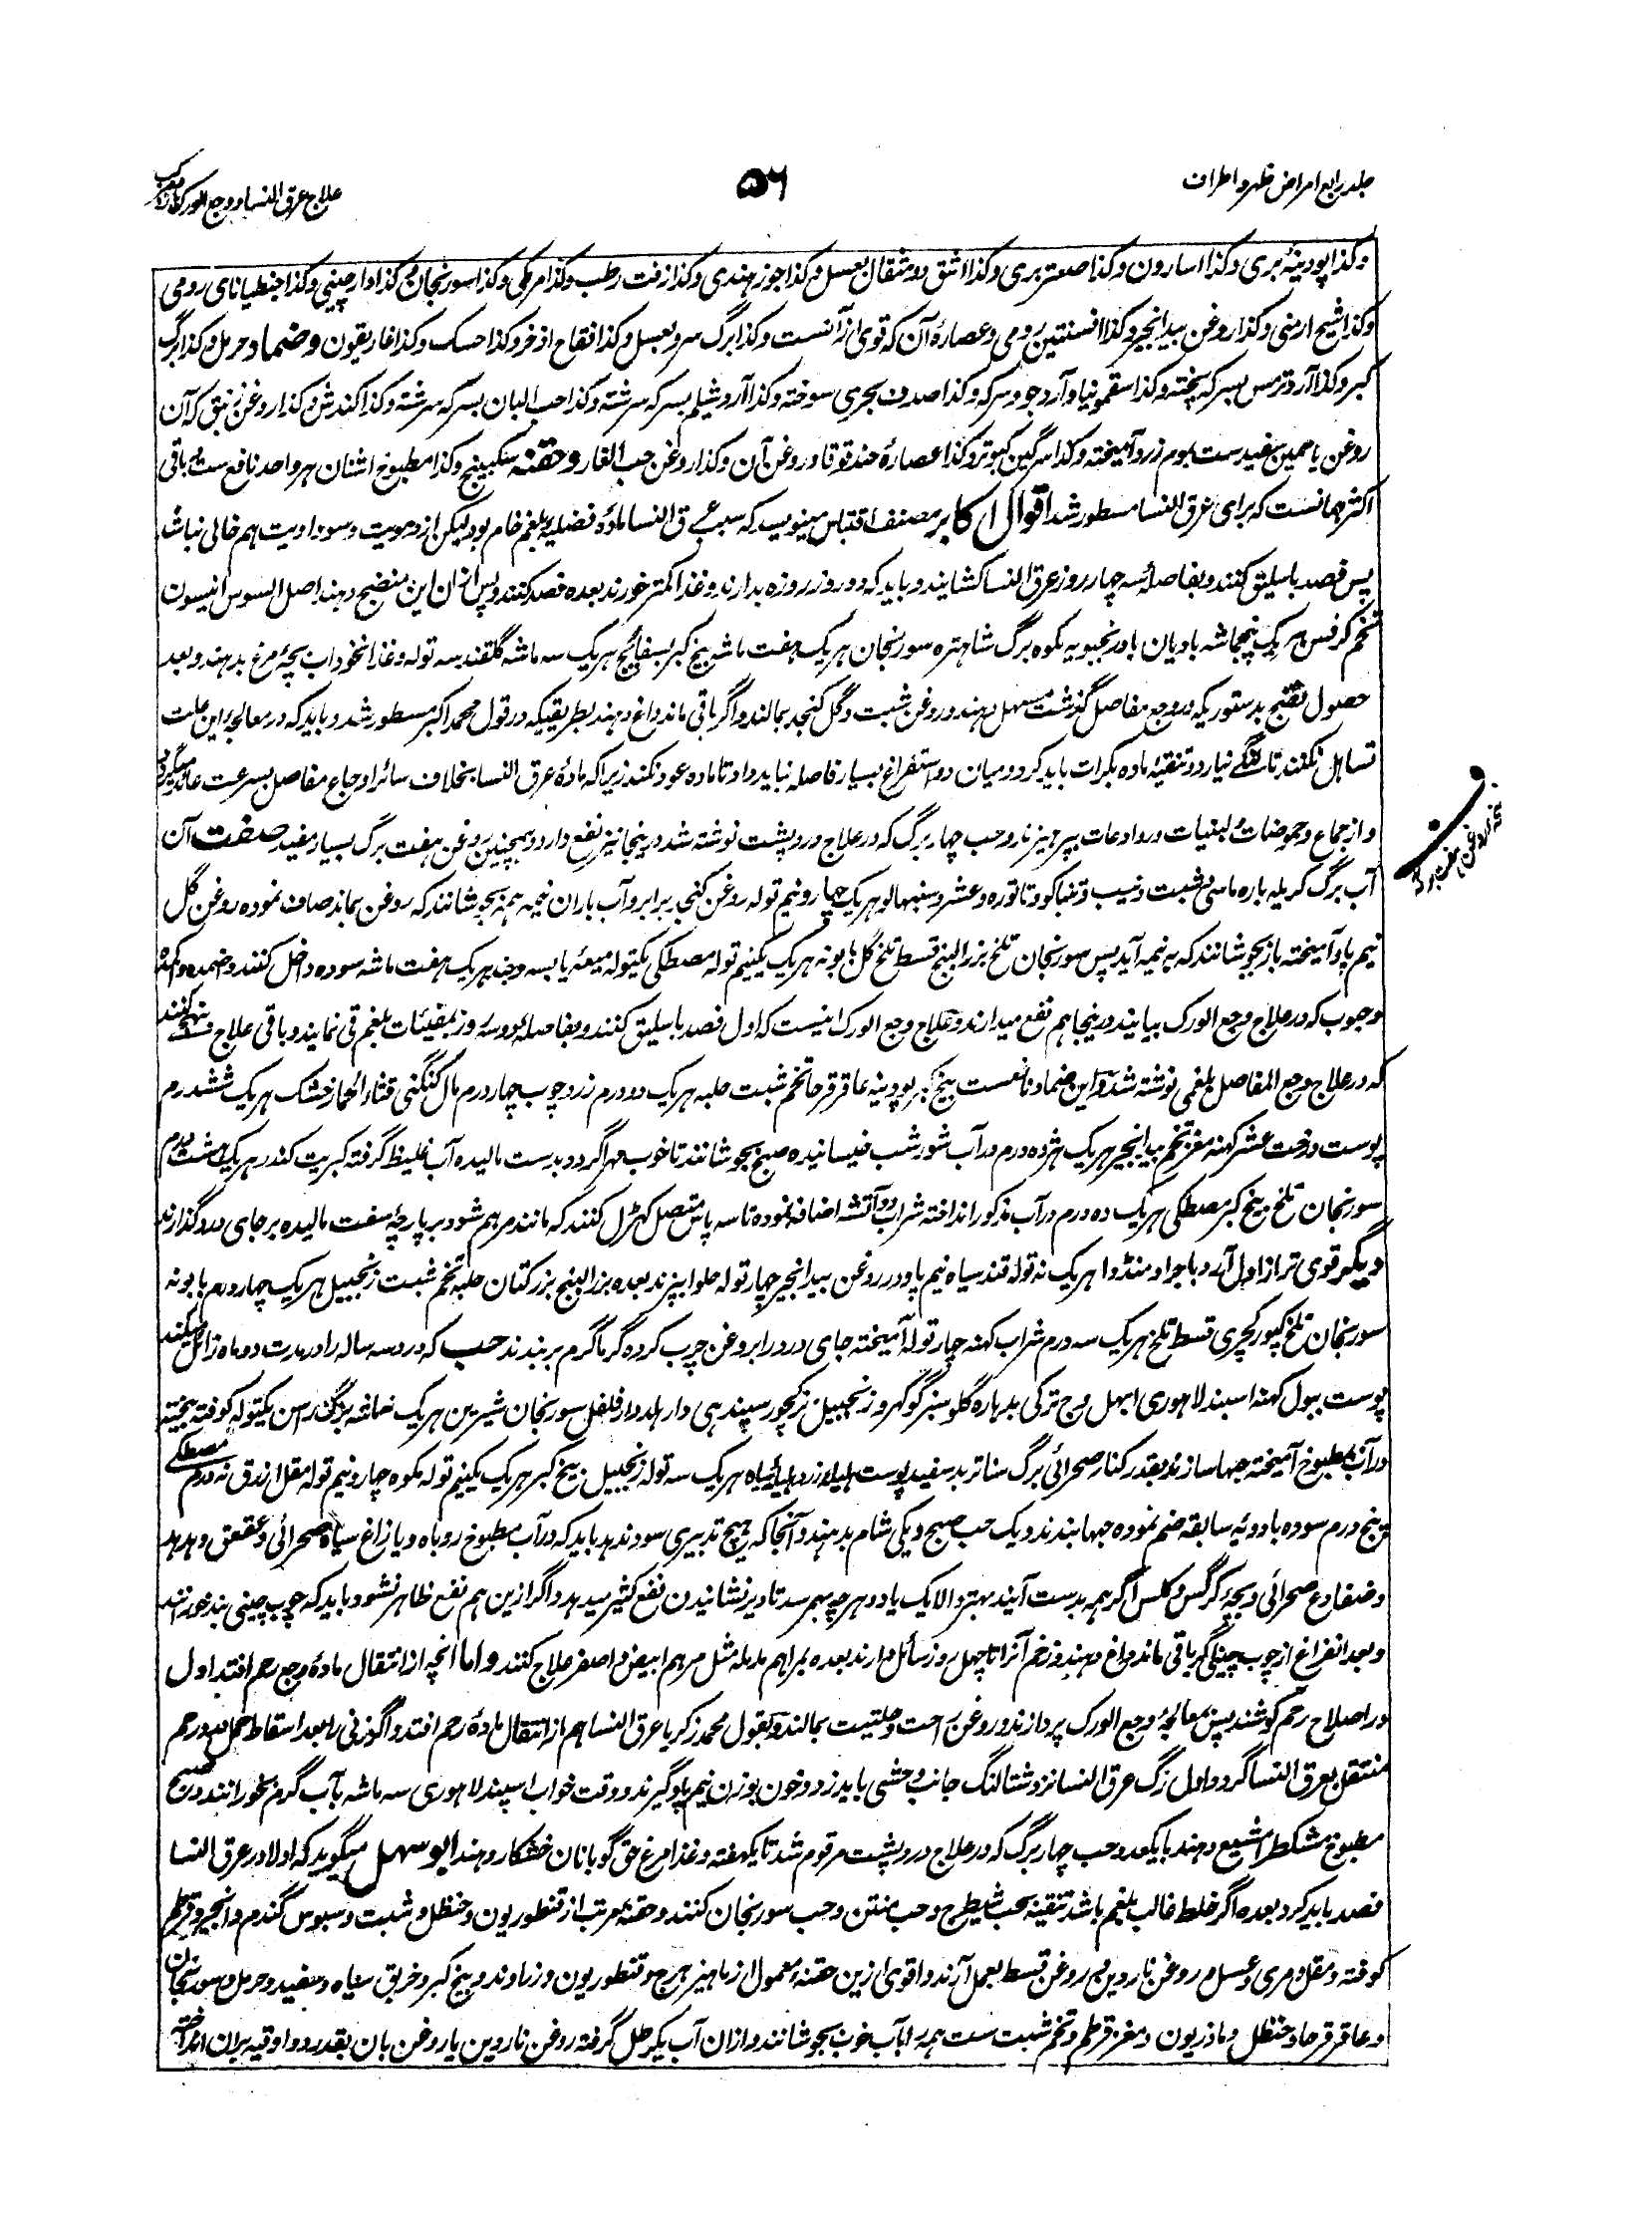 جلد رابع امراض ظهر و اطراف
۵۶
علاج عرق النسا و وجع الورک
و کذا پودینهٔ بری و کذا اسارون و کذا صعتر بری و کذا اشق دو مثقال بعسل و کذا جوز هندی و کذا زفت رطب و کذا مر مکی و کذا سورنجان و کذا دار چینی و کذا جنطیانای رومی
و کذا شیح ارمنی و کذا روغن بیدانجیر و کذا افسنتین رومی و عصارهٔ آن که قوی از آنست و کذا برگ سرو بعسل و کذا فقاح اذخر و کذا حسک و کذا غاریقون و ضماد حرمل و کذا برگ
کبر و کذا آرد ترمس بسرکه پخته و کذا سقمونیا و آرد جو و سرکه و کذا صدف بحری سوخته و کذا آرد شیلم بسرکه سرشته و کذا حب البان بسرکه سرشته و کذا کندش و کذا روغن زنبق که آن
روغن یاسمین سفید ست بموم زرد آمیخته و کذا سرگین کبوتر و کذا عصارهٔ حندقوقا و روغن آن و کذا روغن حب الغار و حقنه سکبینج و کذا مطبوخ اشنان هر واحد نافع ست و باقی
اکثر همانست که برای عرق النسا مسطور شد اقوال اکابر مصنف اقتباس مینویسد که سبب عرق النسا مادهٔ فضلیهٔ بلغم خام بود لیکن از دمویت و سوداویت هم خالی نباشد
پس فصد باسلیق کنند و بفاصلهٔ سه چهار روز عرق النسا کشایند و باید که دو روز روزه بدارند و غذا کمتر خورند بعده فصد کنند و پس ازان این منضج دهند اصل السوس انیسون
تخم کرفس هر یک پنجماشه بادیان بادرنجبویه مکوه برگ شاهتره سورنجان هر یک هفت ماشه بیخ کبر بسفائج هر یک سه ماشه گلقند سه توله و غذا نخوداب بچهٔ مرغ بدهند و بعد
حصول نضج بدستوریکه در وجع مفاصل گذشت مسهل دهند و روغن شبت و گل کنجد بمالند و اگر باقی ماند داغ دهند بطریقیکه در قول محمد اکبر مسطور شد و باید که در معالجهٔ این علت
تساهل نکنند تا لنگی نیارد و تنقیهٔ ماده بکرات باید کرد و میان دو استفراغ بسیار فاصله نباید داد تا ماده عود نکند زیرا که مادهٔ عرق النسا بخلاف سائر اوجاع مفاصل بسرعت عائد میگردد
و از جماع و حموضات و لبنیات و رادعات بپرهیزند و حب چهار برگ که در علاج درد پشت نوشته شد درینجا نیز نفع دارد و همچنین روغن هفت برگ بسیار مفید صفت آن
آب برگ کریله باره ماسی شبت و نیب و تنباکو و تاتوره و عشر و سنبهالو هر یک چهار و نیم توله روغن کنجد برابر و آب باران نیمه همه بجوشانند که روغن بماند صاف نموده روغن گل
نیم پاو آمیخته باز بجوشانند که به نیمه آید پس سورنجان تلخ بزر البنج قسط تلخ گل بابونه هر یک یکنیم توله مصطکی یکتوله میعهٔ یابسه وجد هر یک هفت ماشه سوده داخل کنند و اضمده
و حبوب که در علاج وجع الورک بیاید درینجا هم نفع میدارند و علاج وجع الورک اینست که اول فصد باسلیق کنند و بفاصلهٔ دو سه روز بمقیئات بلغم قی نمایند و باقی علاج
که در علاج وجع المفاصل بلغمی نوشته شد و این ضماد نافعست بیخ کبر پودینه عاقرقرحا تخم شبت حلبه هر یک دو درم زردچوب چهار درم مال کنگنی قثاء الحمار خشک هر یک ششدرم
پوست درخت عشر کهنه مغز تخم بیدانجیر هر یک هژده درم در آب شور شب خیسانیده صبح بجوشانند تا خوب مهرا گردد بدست مالیده آب غلیظ گرفته کبریت کندر هر یک هشت درم
سورنجان تلخ بیخ کبر مصطکی هر یک ده درم در آب مذکور انداخته شراب دو آتشه اضافه نموده تا سه پاس متصل کهرل کنند که مانند مرهم شود بر پارچهٔ سفت مالیده بر جای درد گذارند
دیگر قوی تر از اول آرد باجرا و منڈوا هر یک نه توله قند سیاه نیم پاو در روغن بیدانجیر چهار توله حلوا بپزند بعده بزر البنج بزر کتان حلبه تخم شبت زنجبیل هر یک چهار درم بابونه
سورنجان تلخ کپور کچری قسط تلخ هر یک سه درم شراب کهنه چهار توله آمیخته جای درد را بروغن چرب کرده گرماگرم بر بندند حب که درد سه ساله را در مدت دو ماه زائل میکند
پوست ببول کهنه اسبند لاهوری ابهل وج ترکی بدهاره گلو سبز گوکهرو زنجبیل نرکچور سپندهی دارهلد دارفلفل سورنجان شیرین هر یک کوفته بیخته
در آب مطبوخ آمیخته حبها سازند بقدر کنار صحرائی برگ سنا تربد سفید پوست هلیلهٔ زرد هلیلهٔ سیاه هر یک سه توله زنجبیل بیخ کبر هر یک یکنیم توله مکوه چهار و نیم توله مقل ازرق نه درم مصطکی
پنج درم سوده با ادویهٔ سابقه ضم نموده حبها بندند و یک حب صبح و یکی شام بدهند و آنجا که هیچ تدبیری سود ندهد باید که در آب مطبوخ روباه و یا زاغ سیاه صحرائی و عقعق و هدهد
و ضفادع صحرائی و بچهٔ کرگس و کلس اگر همه بدست آیند بهتر و الا یک یا دو هر چه بهمرسد تا دیر نشانیدن نفع کثیر میدهد و اگر ازین هم نفع ظاهر نشود باید که چوب چینی بخورانند
و بعد انفراغ از چوب چینی اگر باقی ماند داغ دهند و زخم آنرا تا چهل روز سائل دارند بعده بمراهم مدمله مثل مرهم ابیض و اصفر علاج کنند و اما آنچه از انتقال مادهٔ وجع رحم افتد اول
در اصلاح رحم کوشند پس بمعالجهٔ وجع الورک پردازند و روغن راحت و حلتیت بمالند و بقول محمد زکریا عرق النسا هم از انتقال مادهٔ رحم افتد و اگر زنی را بعد اسقاط حمل درد رحم
منتقل بعرق النسا گردد اول رگ عرق النسا نزد شتالنگ جانب وحشی باید زد و خون بوزن نیم پاو گیرند و وقت خواب اسپند لاهوری سه ماشه بآب گرم بخورانند و صبح
مطبوخ مشکطرامشیع دهند با یکعدد حب چهار برگ که در علاج درد پشت مرقوم شد تا یکهفته و غذا مرغ حق گو با نان خشکار دهند ابو سهل میگوید که اولا در عرق النسا
فصد باید کرد بعده اگر خلط غالب بلغم باشد تنقیه بحب شیطرج و حب منتن و حب سورنجان کنند و حقنهٔ مرتب از قنطوریون و حنظل و شبت و سبوس گندم و انجیر و قرطم
کوفته و مقل و مری و عسل و روغن ناردین و روغن قسط بعمل آرند و اقوی ازین حقنهٔ معمول از ماهیزهرج و قنطوریون و زراوند و بیخ کبر و خربق سیاه و سفید و حرمل و سورنجان
و عاقرقرحا و حنظل و ماذریون و مغز قرطم و تخم شبت ست همه را بآب خوب بجوشانند و ازان آب یکرطل گرفته روغن ناردین یا روغن بان بقدر دو اوقیه بران انداخته